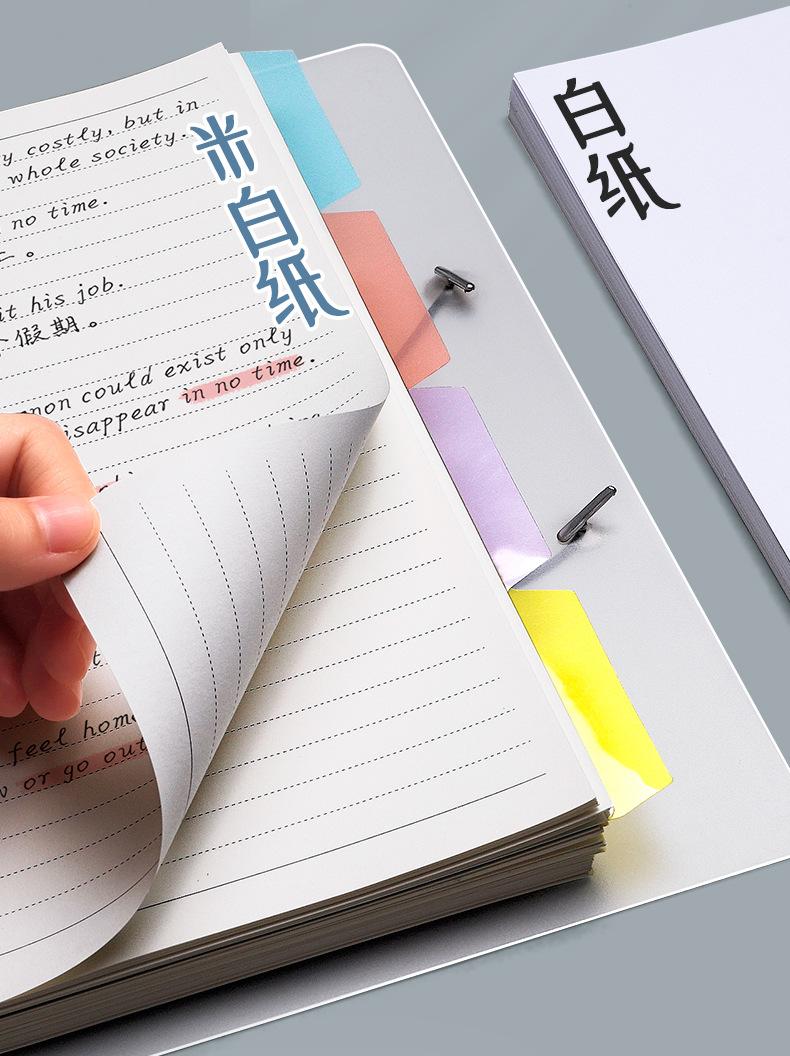 y costly, but in
whole society.
no time.
。
it his job.
假期。
non could exist only
isappear in no time.
feel home
or go out
米白纸
白纸